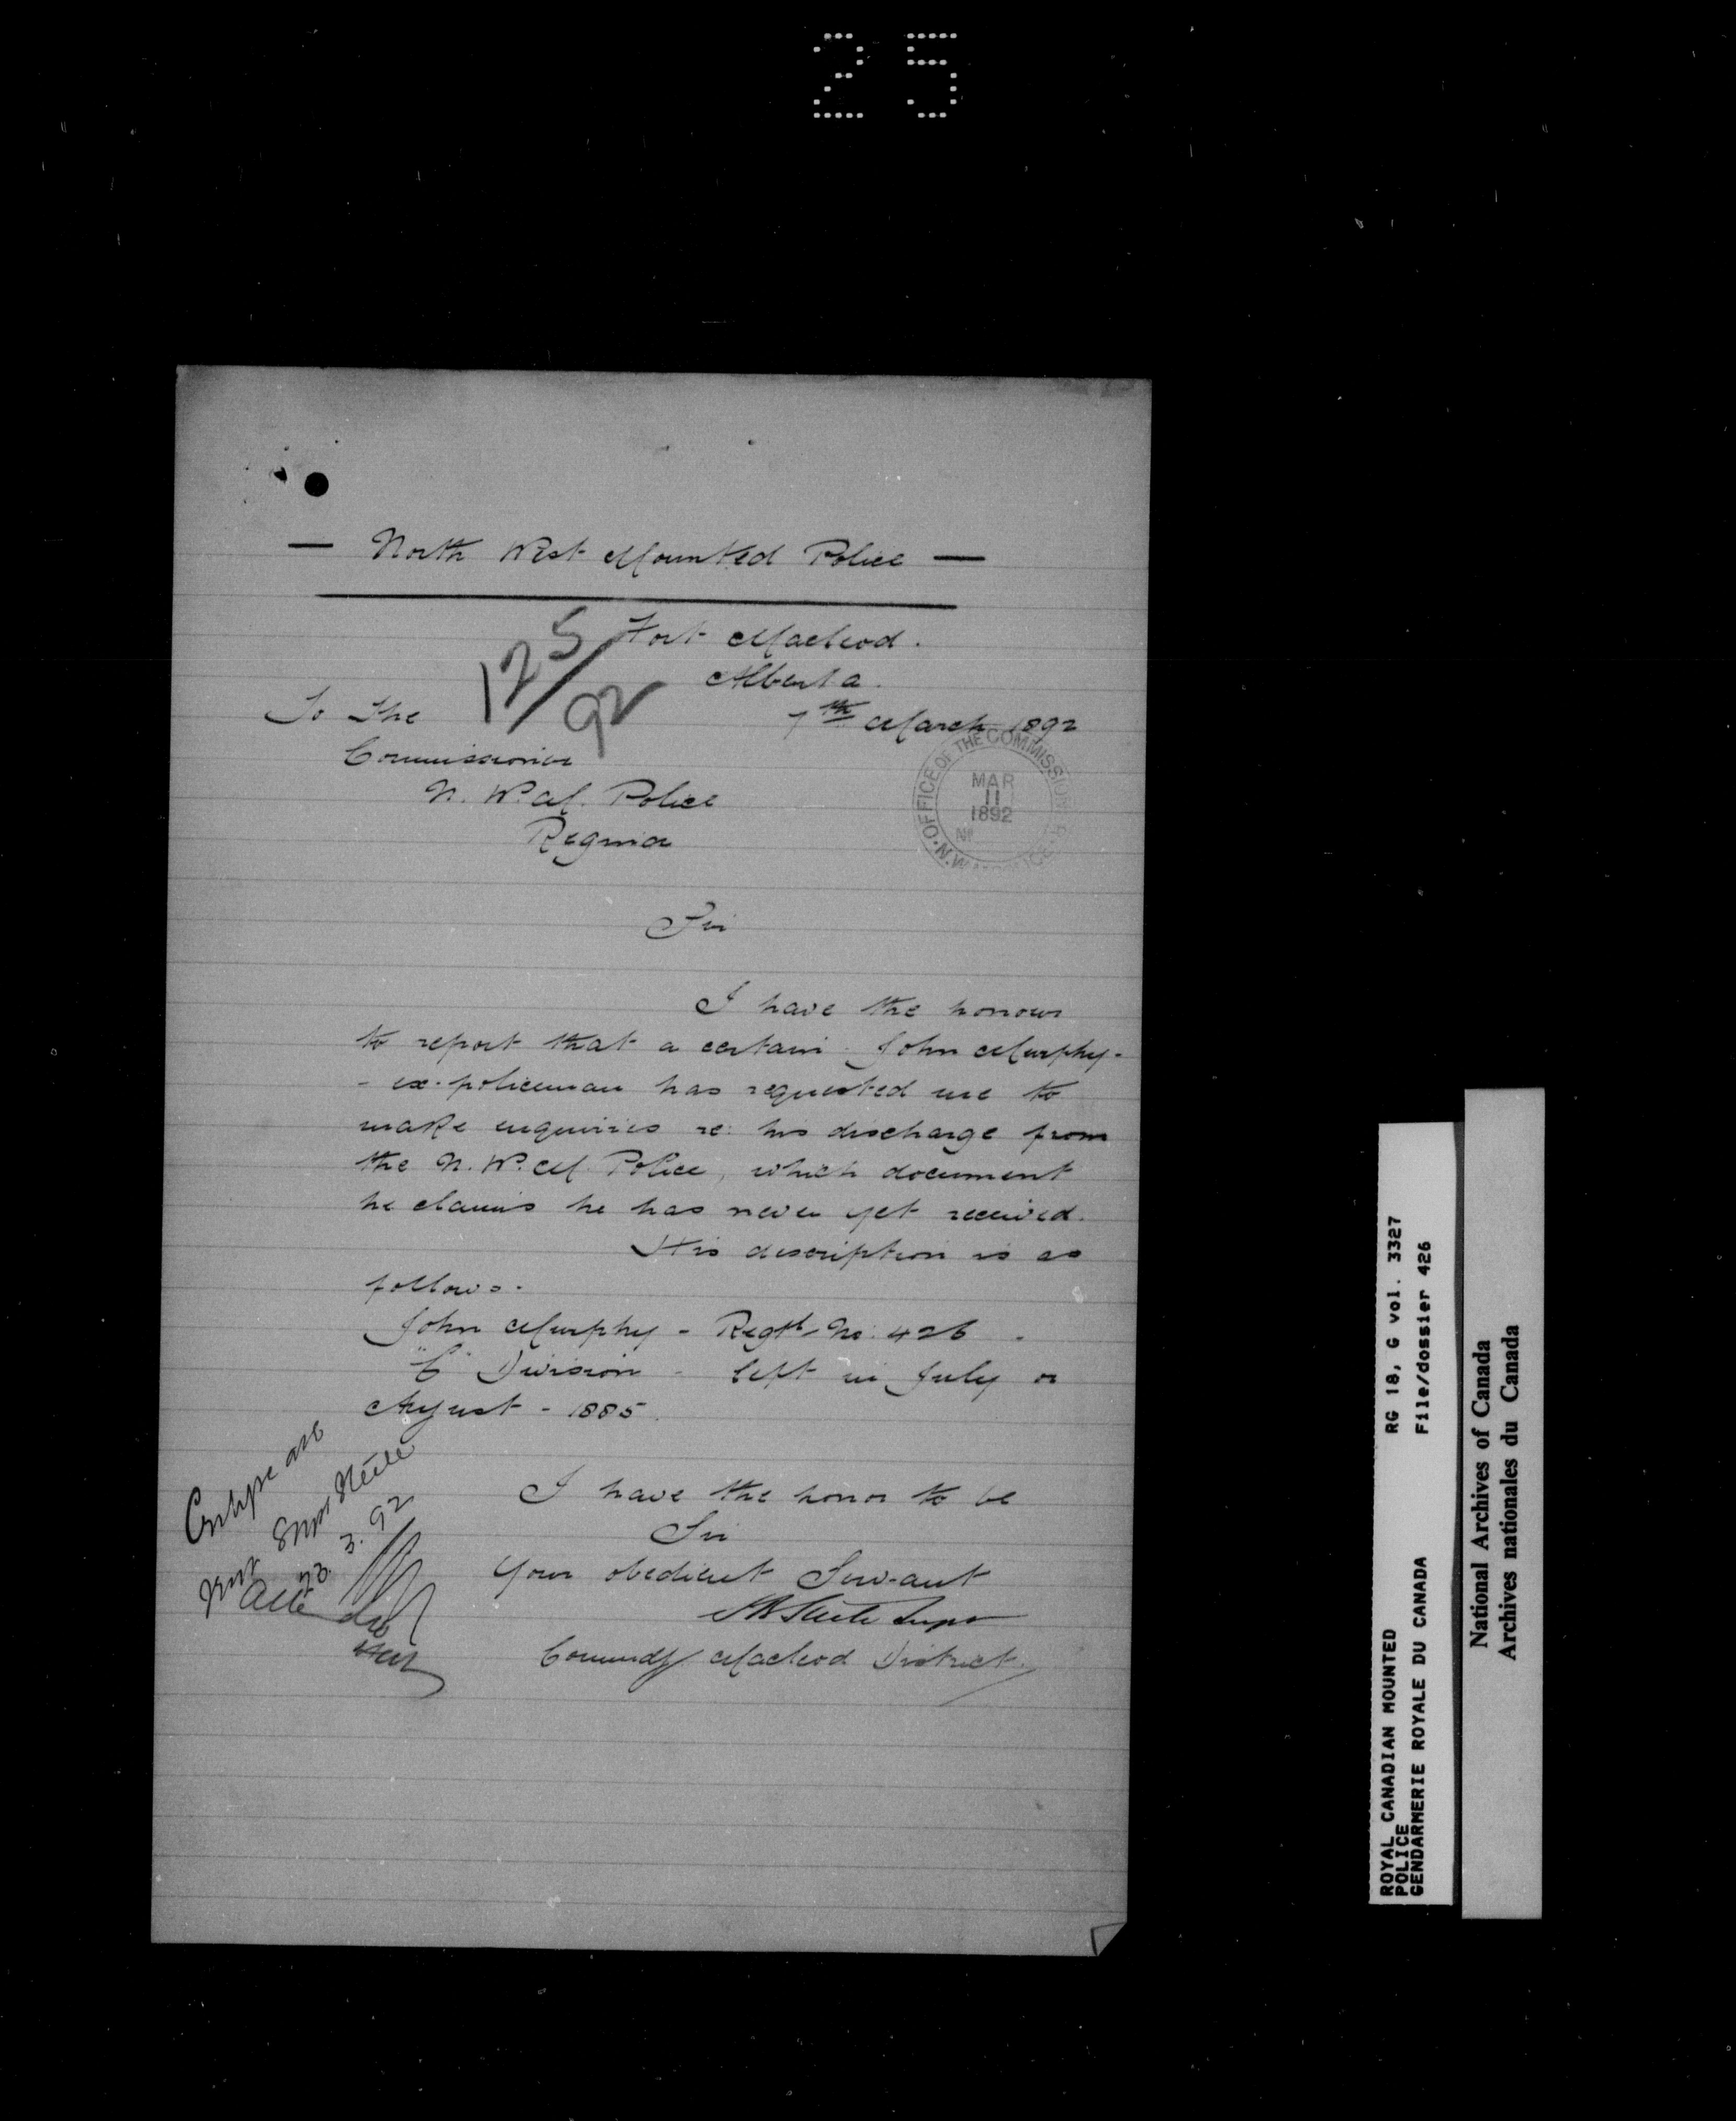 25
— North West Mounted Police —
Fort Macleod.
Alberta.
7th March 1892
125/92
To The
Commissioner
N. W. M. Police
Regina
OFFICE OF THE COMMISSIONER N.W.M. POLICE
MAR
11
1892
No
Sir
I have the honour
to report that a certain John Murphy -
- ex-policeman has requested me to
make enquiries re: his discharge from
the N. W. M. Police, which document
he claims he has never yet received.
His description is as
follows.
John Murphy - Regtl No: 426 -
"C" Division - left in July or
August - 1885.
I have the honor to be
Sir
Your obedient Servant
SB Steele Supt
Commdg Macleod District.
Supt Steele
23.3.92
ROYAL CANADIAN MOUNTED
POLICE
GENDARMERIE ROYALE DU CANADA
RG 18, G vol. 3327
File/dossier 426
National Archives of Canada
Archives nationales du Canada